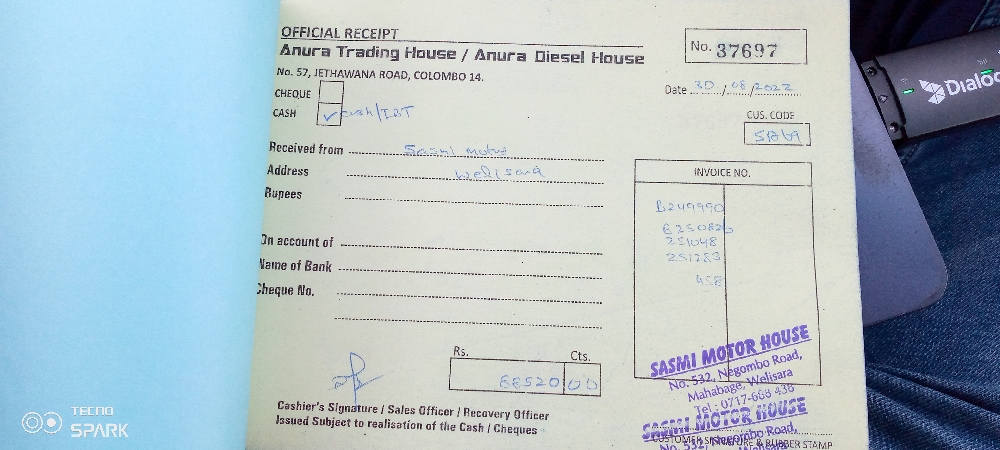 OFFICIAL RECEIPT
Anura Trading House / Anura Diesel House
No. 57, JETHAWANA ROAD, COLOMBO 14.
No. 37697
Date 30/08/2022
CHEQUE
CASH ✓ cash/IBT
CUS. CODE
Received from Sasmi Motor
Address Welisara
Rupees
INVOICE NO.
B249990
251048
251283
458
On account of
Name of Bank
Cheque No.
Rs. Cts.
68520 00
Cashier's Signature / Sales Officer / Recovery Officer
Issued Subject to realisation of the Cash / Cheques
SASMI MOTOR HOUSE
No. 532, Negombo Road,
Mahabage, Welisara
Tel : 0717-668 438
SASMI MOTOR HOUSE
No. 532, Negombo Road,
CUSTOMER SIGNATURE & RUBBER STAMP
Dialog
TECNO
SPARK